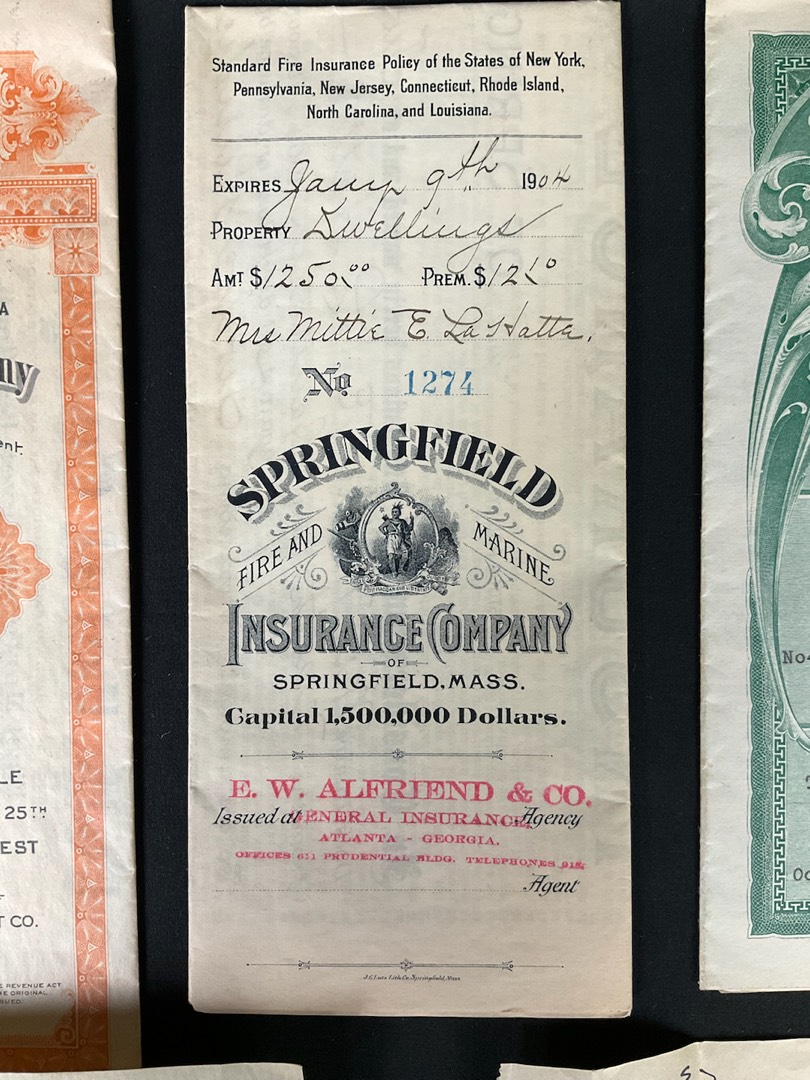 Standard Fire Insurance Policy of the States of New York,
Pennsylvania, New Jersey, Connecticut, Rhode Island,
North Carolina, and Louisiana.
EXPIRES Jany 9th 1904
PROPERTY Dwellings
AMT $1250.00 PREM. $12
Mrs Mittie E. La Hatte.
No 1274
SPRINGFIELD
FIRE AND MARINE
INSURANCE COMPANY
OF
SPRINGFIELD, MASS.
Capital 1,500,000 Dollars.
E. W. ALFRIEND & CO.
Issued at GENERAL INSURANCE Agency
ATLANTA - GEORGIA.
OFFICES 611 PRUDENTIAL BLDG. TELEPHONES
Agent
J.C. Lutz Lith Co. Springfield, Mass
A
ny
ent.
LE
25TH
EST
T CO.
E REVENUE ACT
E ORIGINAL
SUED.
No4
Oc